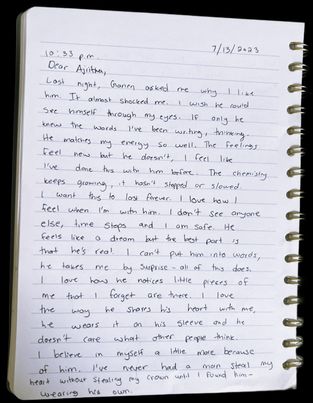 7/13/2023
10:33 p.m.
Dear Ajritha,
Last night, Ganen asked me why I like
him. It almost shocked me. I wish he could
see himself through my eyes. If only he
knew the words I've been writing, thinking.
He matches my energy so well. The feelings
feel new but he doesn't, I feel like
I've done this with him before. The chemistry
keeps growing, it hasn't stopped or slowed.
I want this to last forever. I love how I
feel when I'm with him. I don't see anyone
else, time stops and I am safe. He
feels like a dream but the best part is
that he's real. I can't put him into words,
he takes me by suprise - all of this does.
I love how he notices little pieces of
me that I forget are there. I love
the way he shares his heart with me,
he wears it on his sleeve and he
doesn't care what other people think.
I believe in myself a little more because
of him. I've never had a man steal my
heart without stealing my crown until I found him-
wearing his own.